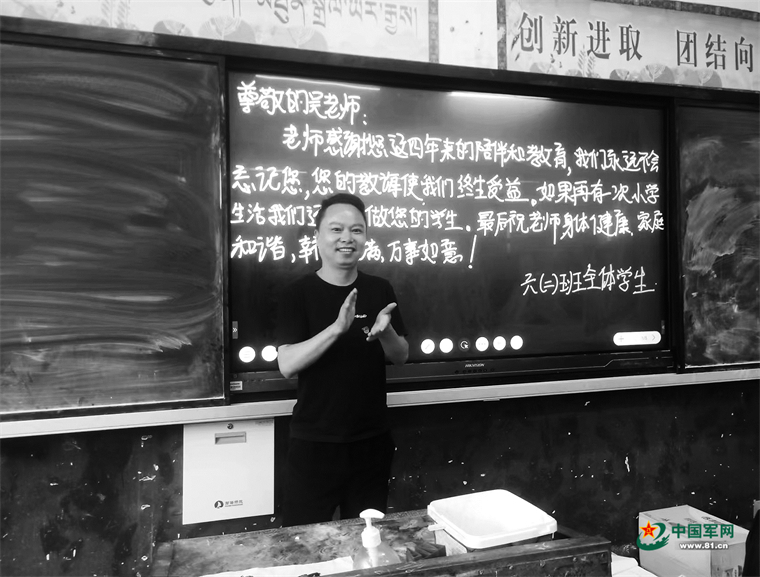 创新进取 团结向
尊敬的吴老师：
老师感谢您这四年来的陪伴和教育，我们永远不会
忘记您，您的教诲使我们终生受益。如果再有一次小学
生活我们还 做您的学生。最后祝老师身体健康、家庭
和谐，幸 满，万事如意！
六(二)班全体学生.
HIKVISION
中国军网
www.81.cn